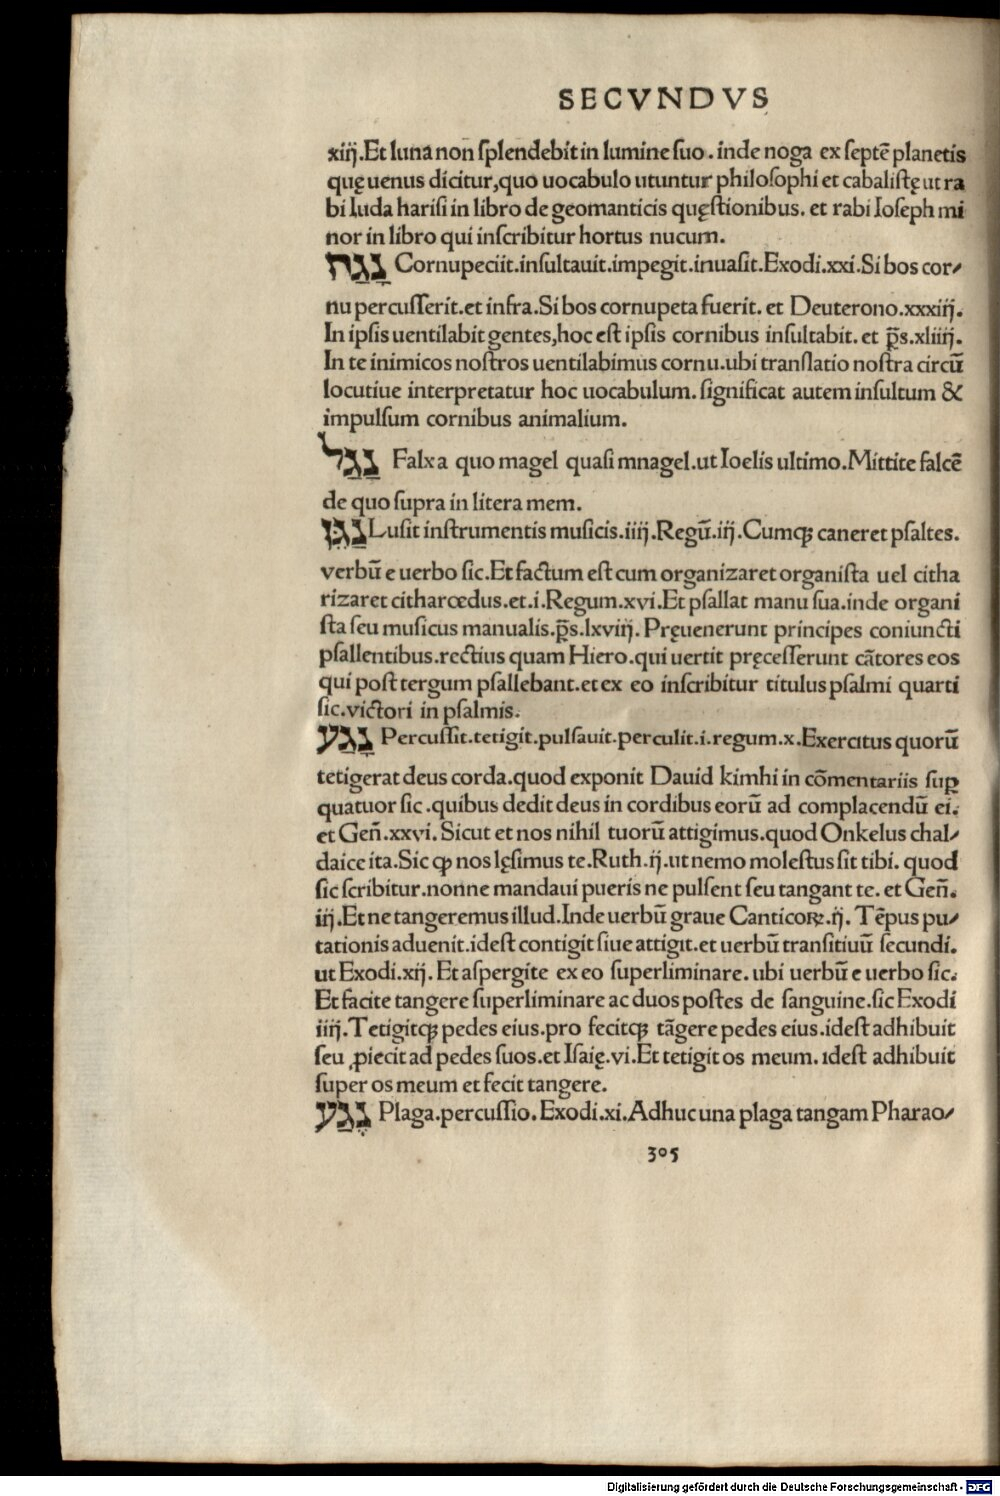 SECVNDVS
xiij.Et luna non ſplendebit in lumine ſuo. inde noga ex ſeptē planetis
quę uenus dicitur,quo uocabulo utuntur philoſophi et cabaliſtę ut ra
bi Iuda hariſi in libro de geomanticis quęſtionibus. et rabi Ioſeph mi
nor in libro qui inſcribitur hortus nucum.
נָגַח Cornupeciit.inſultauit.impegit.inuaſit.Exodi.xxi.Si bos cor⸗
nu percuſſerit.et infra.Si bos cornupeta fuerit. et Deuterono.xxxiij.
In ipſis uentilabit gentes,hoc eſt ipſis cornibus inſultabit. et p̄s.xliiij.
In te inimicos noſtros uentilabimus cornu.ubi tranſlatio noſtra circū
locutiue interpretatur hoc uocabulum. ſignificat autem inſultum &
impulſum cornibus animalium.
נָגַל Falx a quo magel quaſi mnagel.ut Ioelis ultimo.Mittite falcē
de quo ſupra in litera mem.
נִגֵּן Luſit inſtrumentis muſicis.iiij.Regū.iij.Cumqꝫ caneret pſaltes.
verbū e uerbo ſic.Et factum eſt cum organizaret organiſta uel citha
rizaret citharœdus.et.i.Regum.xvi.Et pſallat manu ſua.inde organi
ſta ſeu muſicus manualis.p̄s.lxvij. Pręuenerunt principes coniuncti
pſallentibus.rectius quam Hiero.qui uertit pręceſſerunt cātores eos
qui poſt tergum pſallebant.et ex eo inſcribitur titulus pſalmi quarti
ſic.victori in pſalmis.
נָגַע Percuſſit.tetigit.pulſauit.perculit.i.regum.x.Exercitus quorū
tetigerat deus corda.quod exponit Dauid kimhi in cōmentariis ſuꝑ
quatuor ſic.quibus dedit deus in cordibus eorū ad complacendū ei.
et Geñ.xxvi. Sicut et nos nihil tuorū attigimus.quod Onkelus chal⸗
daice ita.Sic ꝙ nos lęſimus te.Ruth.ij.ut nemo moleſtus ſit tibi. quod
ſic ſcribitur.nonne mandaui pueris ne pulſent ſeu tangant te. et Geñ.
iij.Et ne tangeremus illud.Inde uerbū graue Canticoꝝ.ij. Tēpus pu⸗
tationis aduenit.ideſt contigit ſiue attigit.et uerbū tranſitiuū ſecundi.
ut Exodi.xij. Et aſpergite ex eo ſuperliminare. ubi uerbū e uerbo ſic.
Et facite tangere ſuperliminare ac duos poſtes de ſanguine.ſic Exodi
iiij.Tetigitqꝫ pedes eius.pro fecitqꝫ tāgere pedes eius.ideſt adhibuit
ſeu ꝓiecit ad pedes ſuos.et Iſaię.vi.Et tetigit os meum. ideſt adhibuit
ſuper os meum et fecit tangere.
נֶגַע Plaga.percuſſio. Exodi.xi.Adhuc una plaga tangam Pharao⸗
305
Digitalisierung gefördert durch die Deutsche Forschungsgemeinschaft - DFG